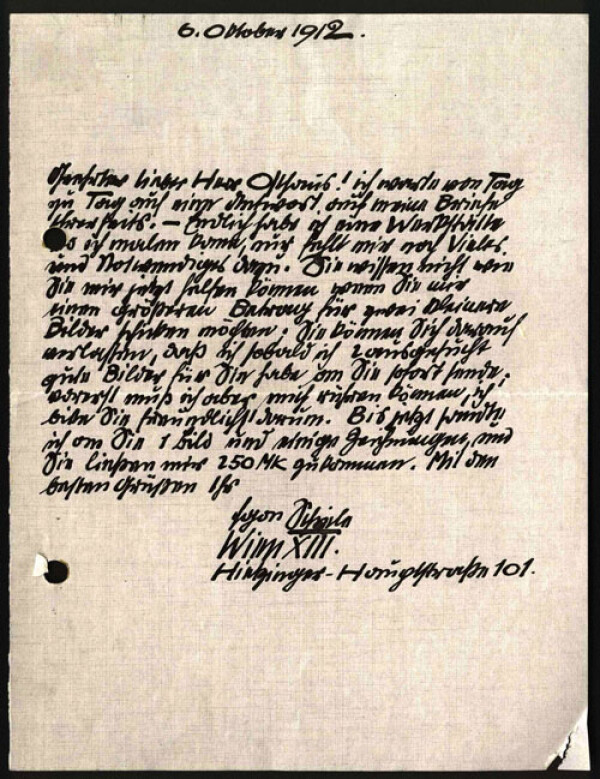 6. Oktober 1912.
Geehrter lieber Herr Osthaus! ich warte von Tag
zu Tag auf eine Antwort auf meine Briefe
Ihrerseits. — Endlich habe ich eine Werkstätte
wo ich malen kann, nur fehlt mir noch Vieles
und Notwendiges dazu. Sie wissen nicht wie
Sie mir jetzt helfen können wenn Sie mir
einen größeren Betrag für zwei kleinere
Bilder schicken möchten; Sie können Sich darauf
verlassen, daß ich sobald ich 2 ausgesucht
gute Bilder für Sie habe an Sie sofort sende;
vorerst muß ich aber mich rühren können, ich
bitte Sie freundlichst darum. Bis jetzt sandte
ich an Sie 1 Bild und einige Zeichnungen, und
Sie ließen mir 250 MK zukommen. Mit den
besten Grüßen Ihr
Egon Schiele
Wien XIII.
Hietzinger-Hauptstraße 101.